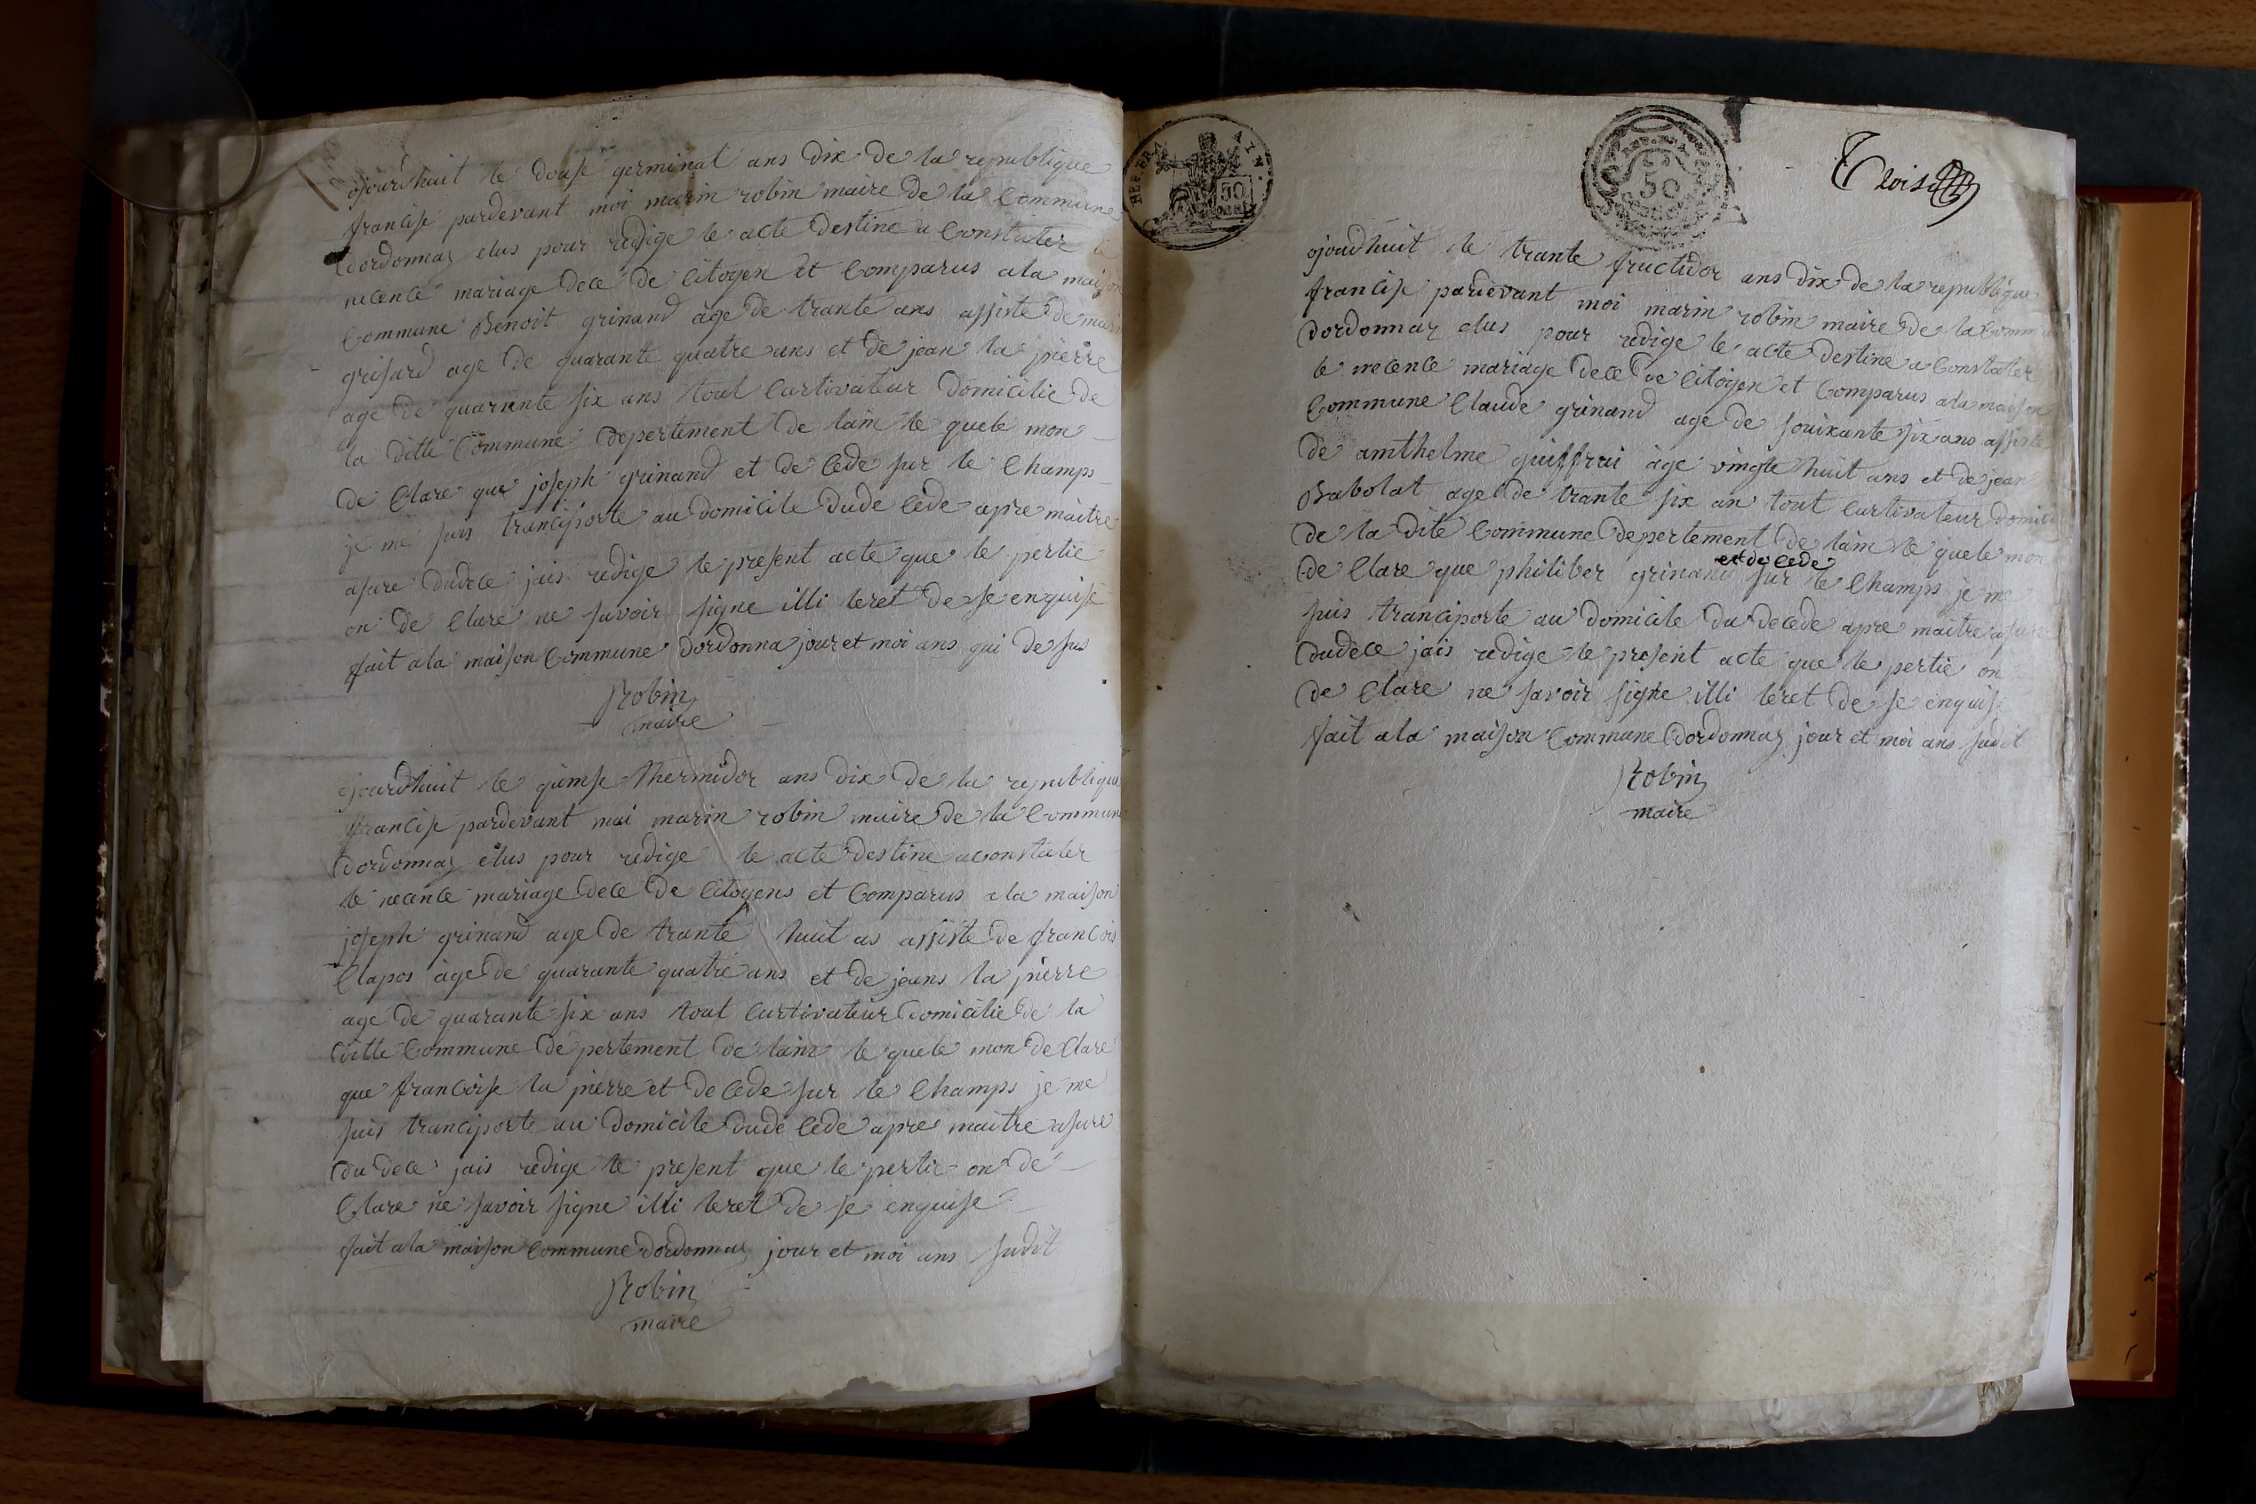 ojourdhuit le douse germinal ans dix de la republique
francise pardevant moi marin robin maire de la Commune
dordonnaz elus pour redige le acte destine a Constater le
necence mariage dece de Citoyen et Comparus ala maison
Commune Benoit grinand age de trante ans assiste de
grisard age de quarante quatre ans et de jean la pierre
age de quarente six ans tout Curtivateur domicilie de
la ditte Commune depertement de lain le quele mon
de Clare que joseph grinand et de Cede sur le Champs
je me suis tranciporte au domicile dude Cede apre maitre
asure dudece jais redige le present acte que le pertie
on de Clare ne savoir signe illi leret de se enquise
fait ala maison Commune dordonna jour et moi ans qui desus
Robin
maire
ojourdhuit le quinse thermidor ans dix de la republique
francise pardevant moi marin robin maire de la Commune
dordonnaz elus pour redige le acte destine aconstater
le necence mariage dece de Citoyens et Comparus a la maison
joseph grinand age de trante huit as assiste de francois
Clapos age de quarante quatre ans et de jeans la pierre
age de quarante six ans tout Curtivateur domicilie de la
ditte Commune depertement de lain le quele mon de Clare
que francoise la pierre et de Cede sur le Champs je me
suis tranciporte au domicile dude Cede apre maitre asure
du dece jais redige le present que le pertie on de
Clare ne savoir signe illi leret de se enquise
fait ala maison Commune dordonnaz jour et moi ans sudit
Robin
maire
REP. FRA.
50
50
Trois
ojourdhuit le trante fructidor ans dix de la republique
francise pardevant moi marin robin maire de la Commune
dordonnaz elus pour redige le acte destine a Constater
le necence mariage dece de Citoyen et Comparus ala maison
Commune Claude grinand age de souixante six ans assiste
de amthelme guiffrai age vingte huit ans et de jean
Babolat age de trante six an tout Curtivateur domicilie
de la dite Commune depertement de lain le quele mon
de Clare que philiber grinand et de Cede sur le Champs je me
suis tranciporte au domicile du decede apre maitre asure
dudece jais redige le present acte que le pertie on
de Clare ne savoir signe illi leret de se enquise
fait ala maison Commune dordonnaz jour et moi ans sudit
Robin
maire